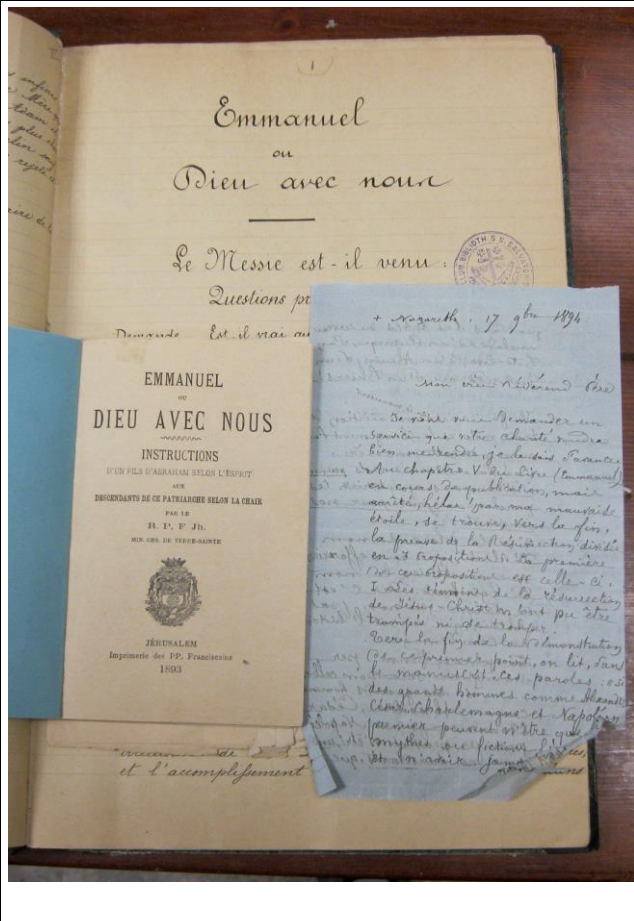 1
Emmanuel
ou
Dieu avec nous
Le Messie est-il venu :
Questions pr
Demande Est-il vrai
BIBLIOTH S. SALVATOR
EMMANUEL
OU
DIEU AVEC NOUS
INSTRUCTIONS
D'UN FILS D'ABRAHAM SELON L'ESPRIT
AUX
DESCENDANTS DE CE PATRIARCHE SELON LA CHAIR
PAR LE
R. P. F Jh.
MIN. OBS. DE TERRE-SAINTE
JÉRUSALEM
Imprimerie des PP. Franciscains
1893
et l'accomplissement
+ Nazareth, 17 9bre 1894
Mon Révérend Père
Je viens vous demander un
service que votre charité voudra
bien me rendre, je le sais d'avance
Au chapitre V du Livre (Emmanuel)
en cours de publication, mais
arrêté, hélas! par ma mauvaise
étoile, se trouve, vers la fin,
la preuve de la Résurrection, divisée
en 3 propositions. La première
de ces propositions est celle-ci.
I Les témoins de la résurrection
de Jésus-Christ n'ont pu être
trompés ni se tromper
Vers la fin de la démonstration
de ce premier point, on lit, dans
le manuscrit ces paroles : si
des grands hommes comme Alexandre
César, Charlemagne et Napoléon
premier peuvent n'être que
mythes ou fictions
et n'avoir jamais